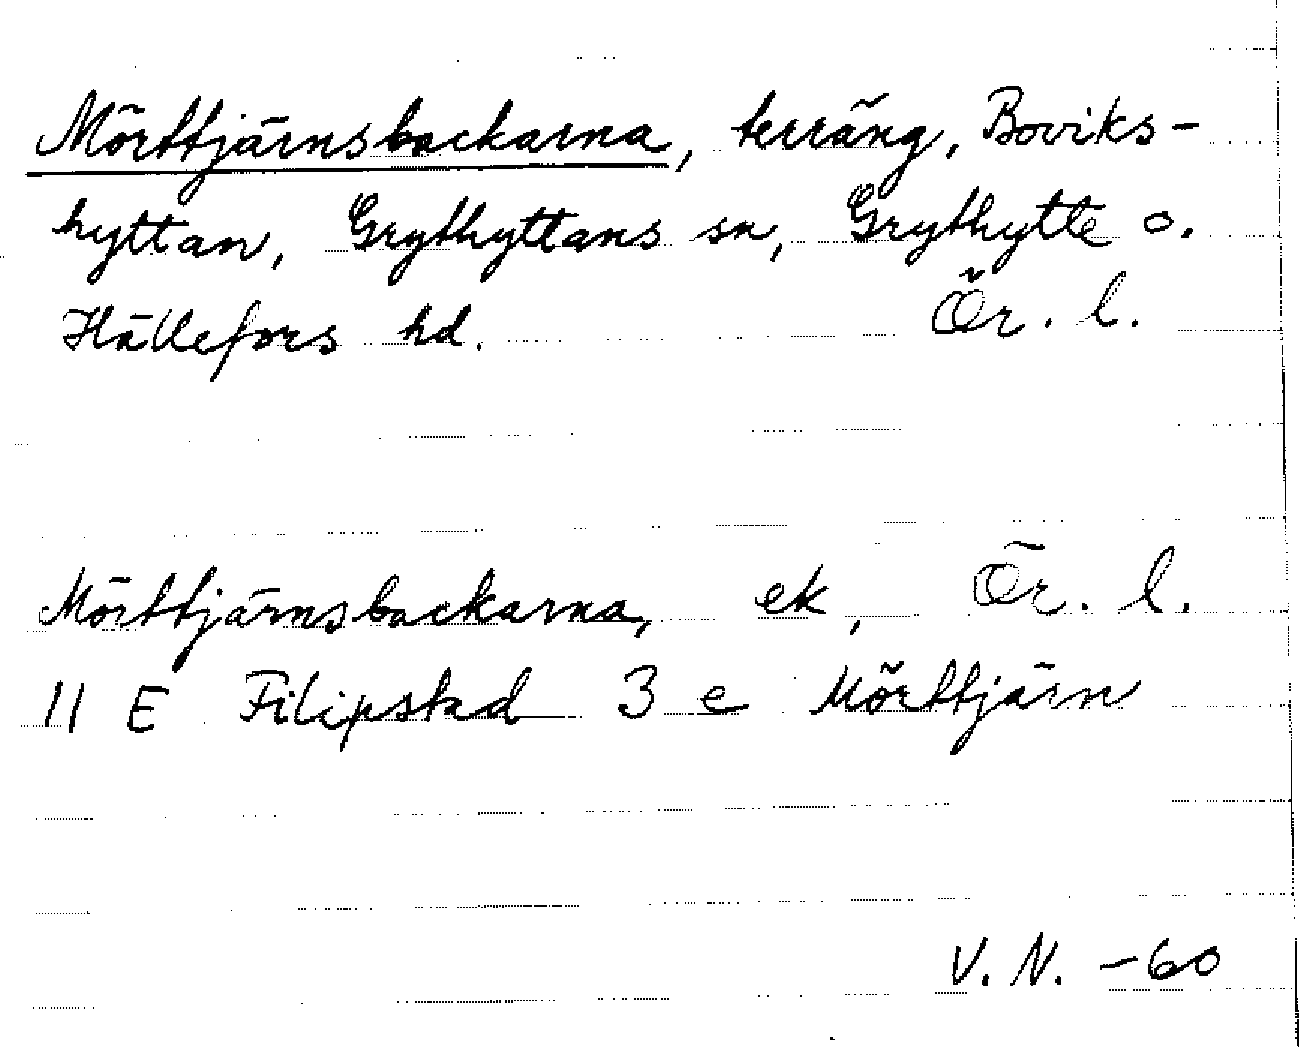 Mörttjärnsbackarna, terräng, Boviks-
hyttan, Grythyttans sn, Grythytte o.
Hällefors hd. Ör. l.
Mörttjärnsbackarna, ek, Ör. l.
11 E Filipstad 3 e Mörttjärn
V. N. -60